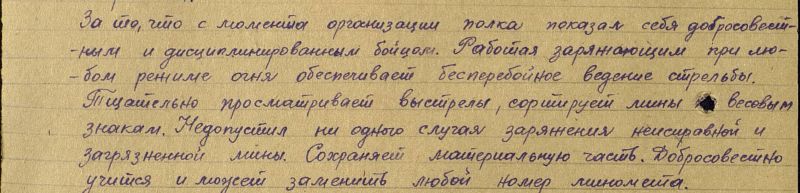 За то, что с момента организации полка показал себя добросовест-
-ным и дисциплинированным бойцом. Работая заряжающим при лю-
-бом режиме огня обеспечивает бесперебойное ведение стрельбы.
Тщательно просматривает выстрелы, сортирует мины весовым
знакам. Недопустил ни одного случая заряжения неисправной и
загрязненной мины. Сохраняет материальную часть. Добросовестно
учится и может заменить любой номер миномета.